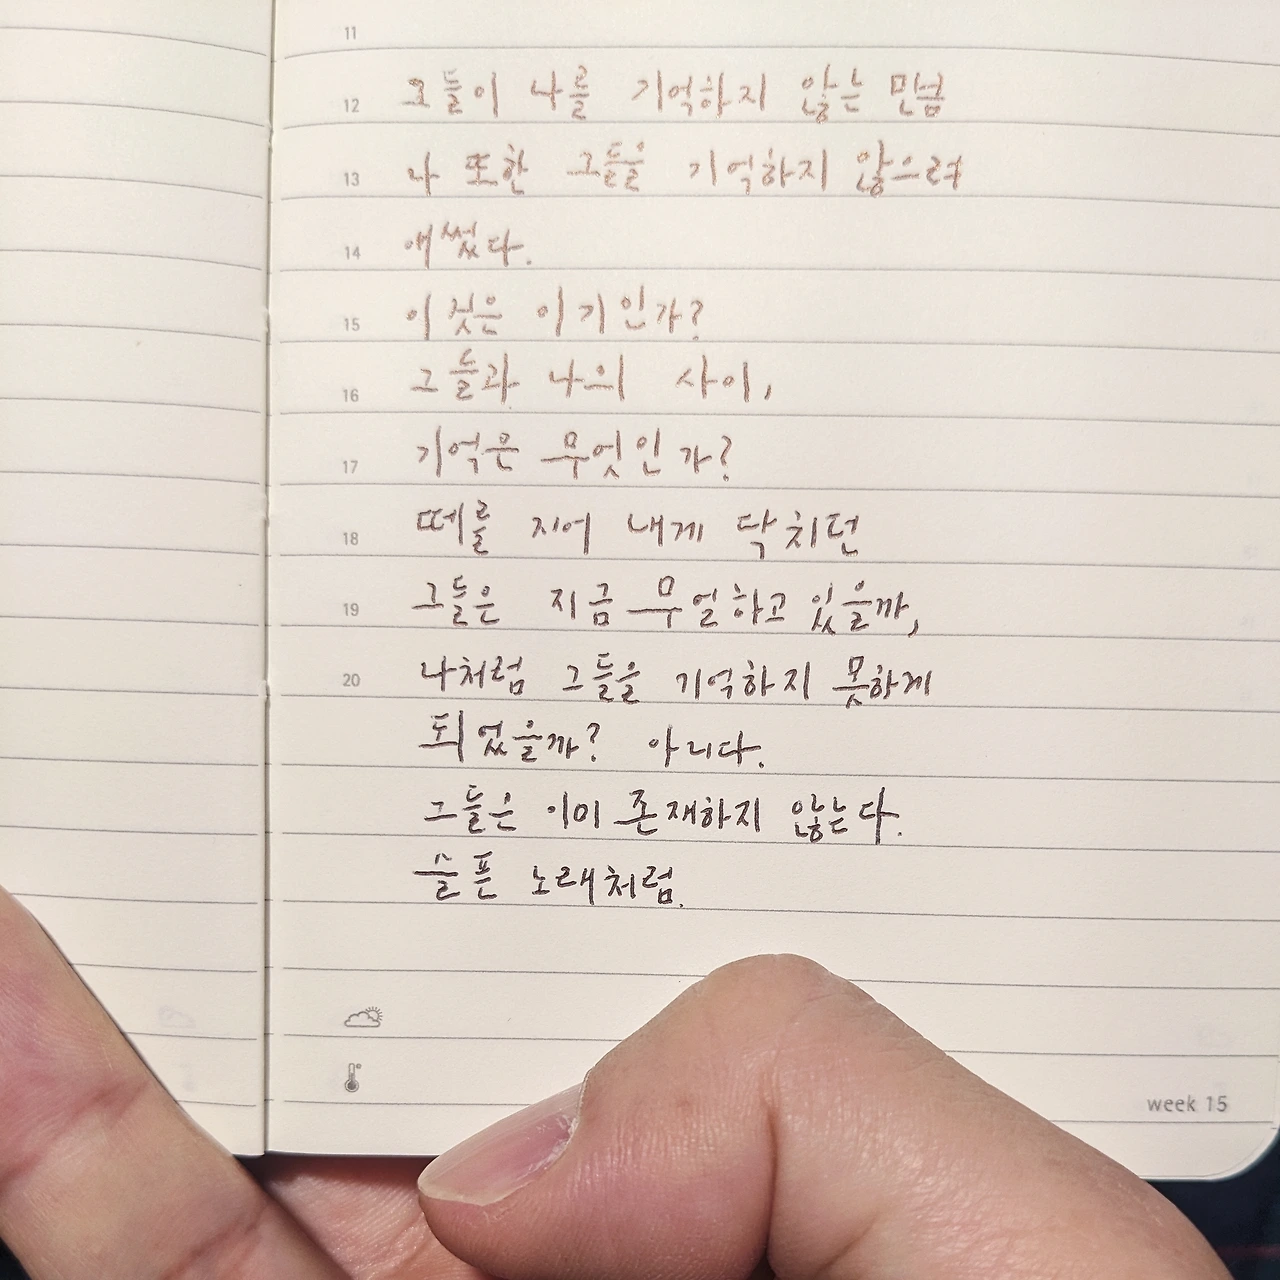 11
12 그들이 나를 기억하지 않는 만큼
13 나 또한 그들을 기억하지 않으려
14 애썼다.
15 이것은 이기인가?
16 그들과 나의 사이,
17 기억은 무엇인가?
18 떼를 지어 내게 닥치던
19 그들은 지금 무얼하고 있을까,
20 나처럼 그들을 기억하지 못하게
되었을까? 아니다.
그들은 이미 존재하지 않는다.
슬픈 노래처럼.
week 15